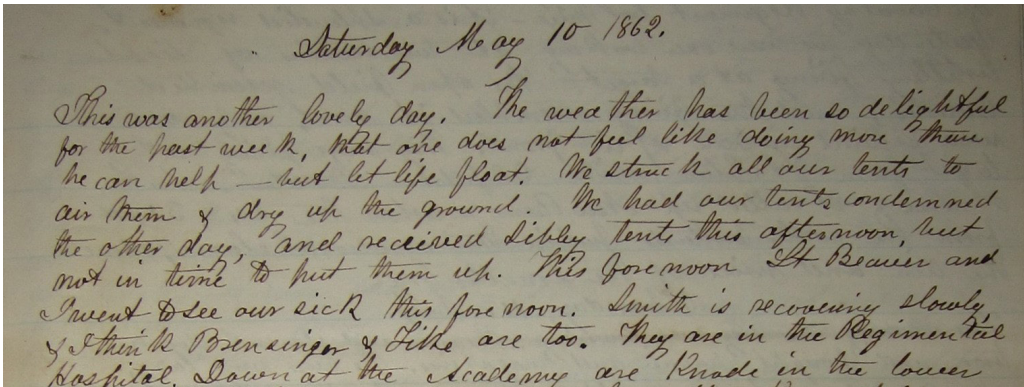 Saturday May 10 1862.
This was another lovely day. The weather has been so delightful
for the past week, that one does not feel like doing more than
he can help — but let life float. We struck all our tents to
air them & dry up the ground. We had our tents condemned
the other day, and received Sibley tents this afternoon, but
not in time to put them up. This forenoon Lt Beaver and
I went to see our sick this forenoon. Smith is recovering slowly,
& I think Brensinger & are too. They are in the Regimental
Hospital. Down at the Academy are Knode in the lower